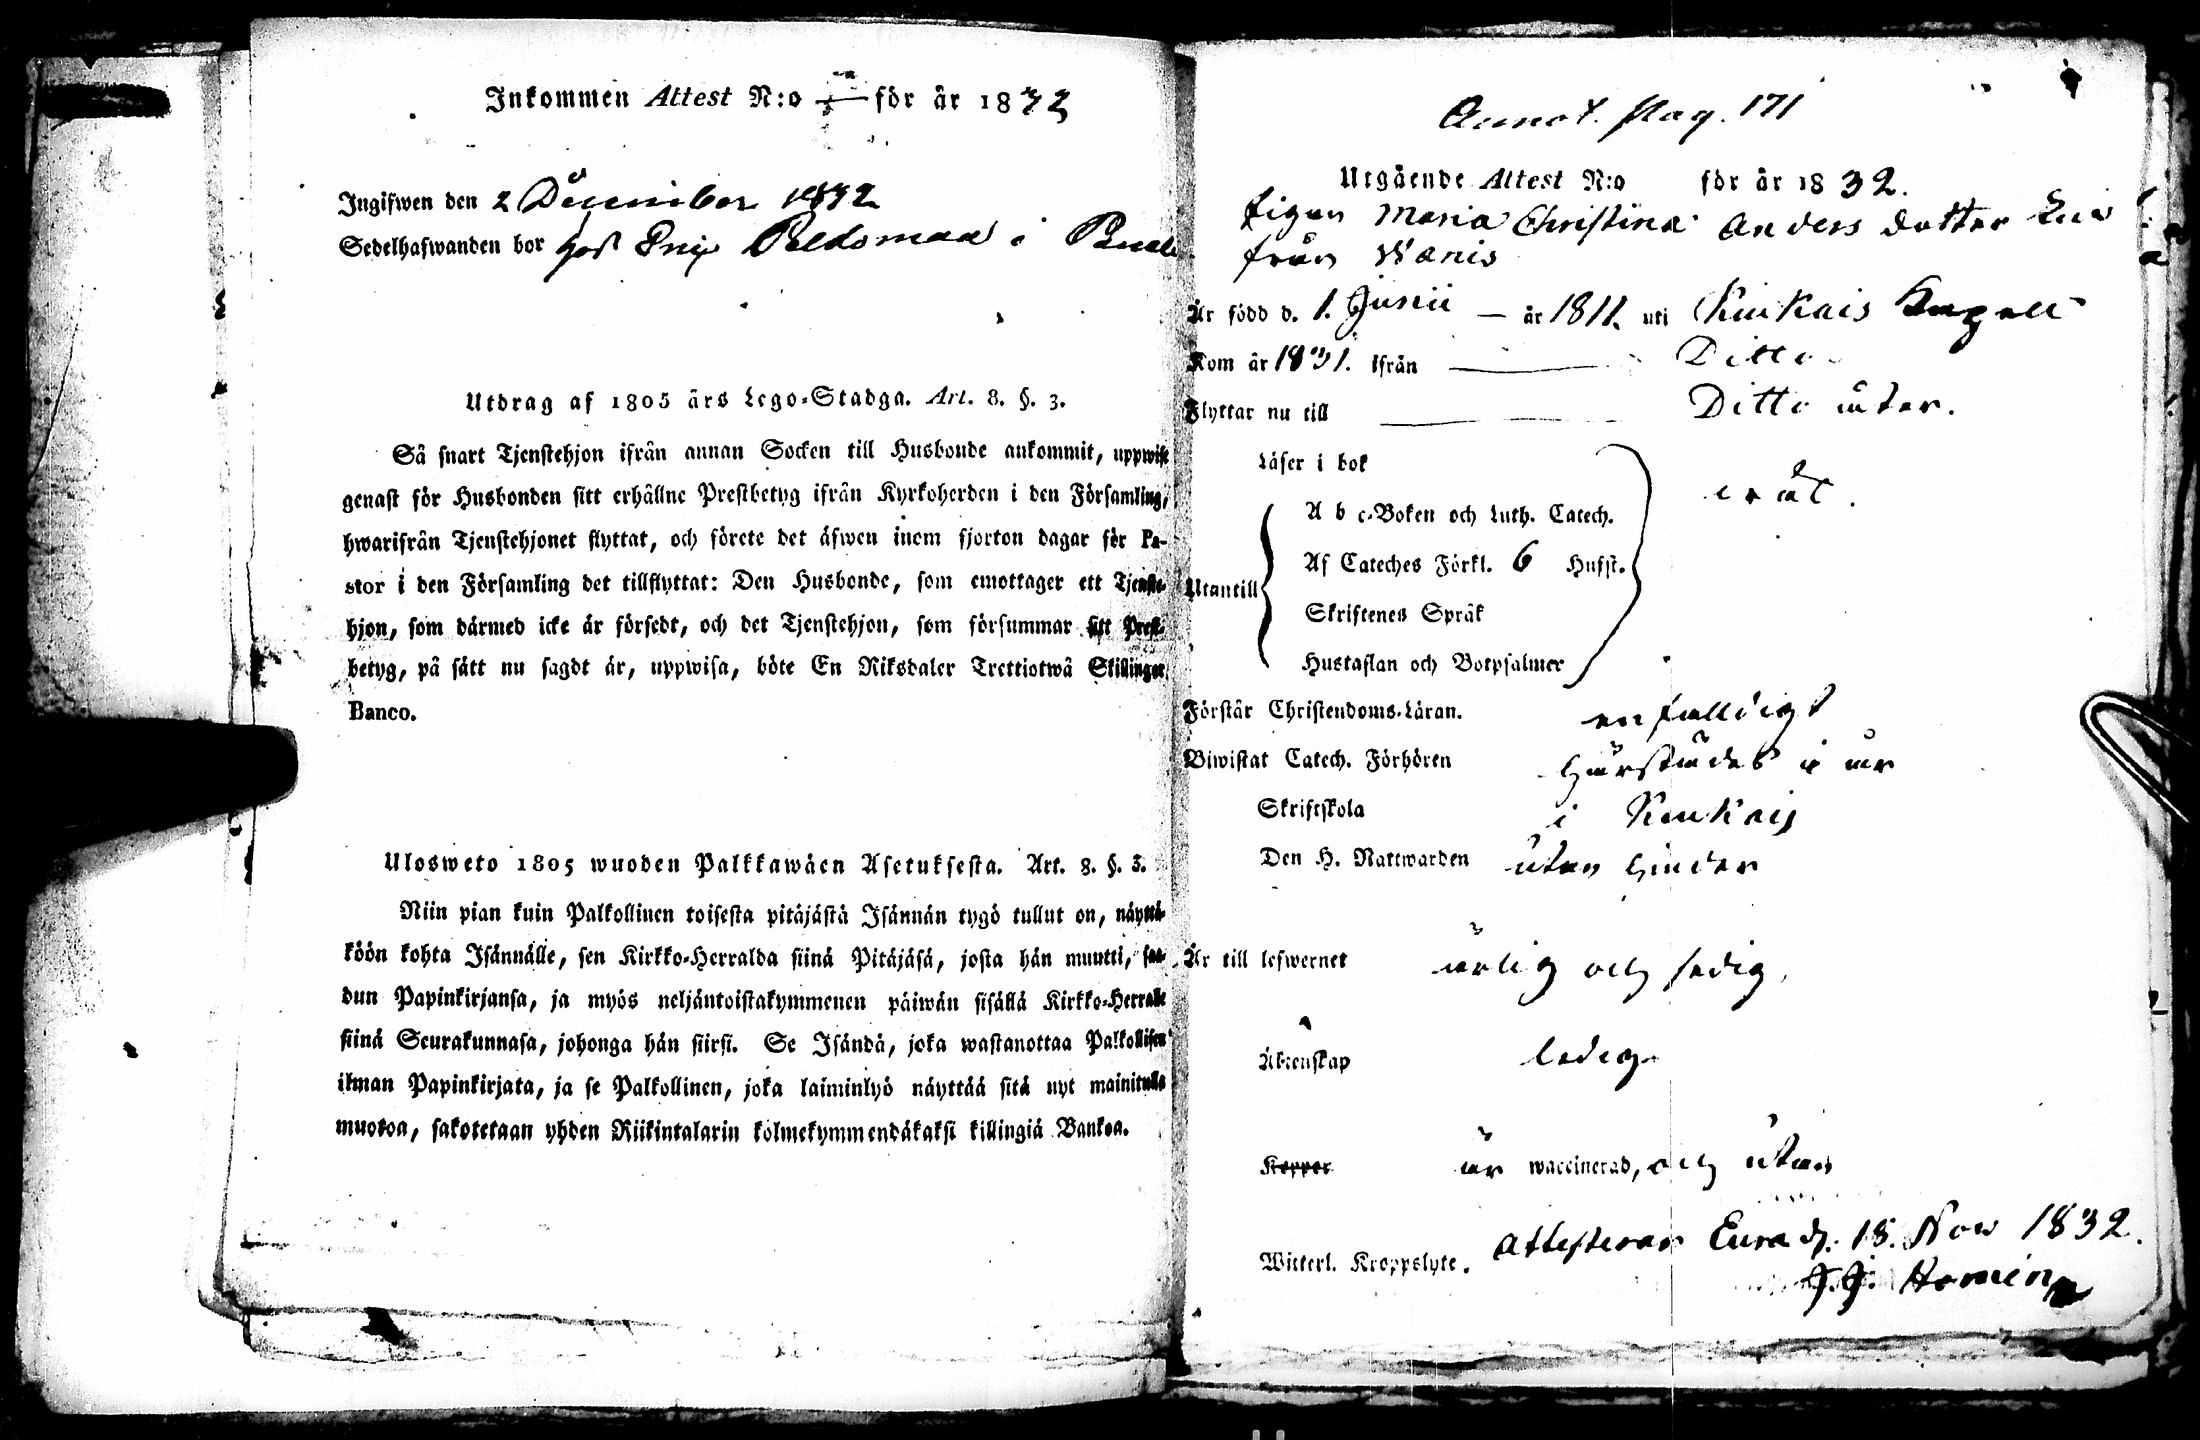 Inkommen Attest N:o för år 1832
Ingifwen den 2 December 1832
Sedelhafwanden bor hos Enip Peldomaa i
Utdrag af 1805 års Lego-Stadga. Art. 8. §. 3.
Så snart Tjenstehjon ifrån annan Socken till Husbonde ankommit, uppwise
genast för Husbonden sitt erhållne Prestbetyg ifrån Kyrkoherden i den Församling,
hwarifrån Tjenstehjonet flyttat, och förete det äfwen inom fjorton dagar för Pa-
stor i den Församling det tillflyttat: Den Husbonde, som emottager ett Tjenste-
hjon, som därmed icke är försedt, och det Tjenstehjon, som försummar sitt Prest-
betyg, på sätt nu sagdt är, uppwisa, böte En Riksdaler Trettiotwå Skillingar
Banco.
Ulosweto 1805 wuoden Palkkawäen Asetuksesta. Art. 8. §. 3.
Niin pian kuin Palkollinen toisesta pitäjästä Isännän tygö tullut on, näyttä-
köön kohta Isännälle, sen Kirkko-Herralda siinä Pitäjäsä, josta hän muutti, saa-
dun Papinkirjansa, ja myös neljäntoistakymmenen päiwän sisällä Kirkko-Herralle
siinä Seurakunnasa, johonga hän siirsi. Se Isändä, joka wastanottaa Palkollisen
ilman Papinkirjata, ja se Palkollinen, joka laiminlyö näyttää sitä nyt mainitulla
muotoa, sakotetaan yhden Riikintalarin kolmekymmendäkaksi killingiä Bankoa.
Annot. pag. 171
Utgående Attest N:o för år 1832.
Pigan Maria Christina Anders dotter
från Wanis
Är född d. 1. Junii — år 1811. uti Kiukais Kapell
Kom år 1831. ifrån Ditto
Flyttar nu till Ditto åter.
Läser i bok
A b c-Boken och Luth. Catech.
Af Cateches Förkl. 6 Hufst.
Utantill
Skriftenes Språk
Hustaflan och Botpsalmer
Förstår Christendoms-Läran. enfalldigt
Biwistat Catech. Förhören härstädes i år
Skriftskola i Kiukais
Den H. Nattwarden utan hinder
Är till lefwernet ärlig och sedig,
Äktenskap ledig.
Koppor är waccinerad, och utan
Witterl. Kroppslyte. Attesterar Eura d. 18. Nov 1832.